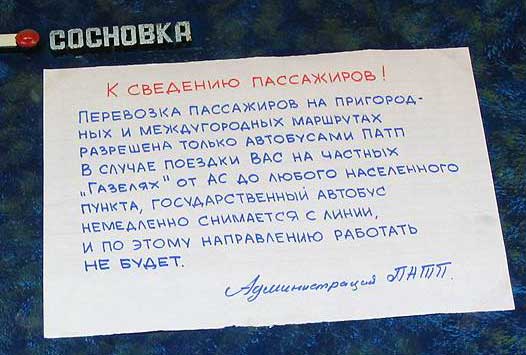 СОСНОВКА
К СВЕДЕНИЮ ПАССАЖИРОВ!
ПЕРЕВОЗКА ПАССАЖИРОВ НА ПРИГОРОД-
НЫХ И МЕЖДУГОРОДНЫХ МАРШРУТАХ
РАЗРЕШЕНА ТОЛЬКО АВТОБУСАМИ ПАТП
В СЛУЧАЕ ПОЕЗДКИ ВАС НА ЧАСТНЫХ
„ГАЗЕЛЯХ" ОТ АС ДО ЛЮБОГО НАСЕЛЕННОГО
ПУНКТА, ГОСУДАРСТВЕННЫЙ АВТОБУС
НЕМЕДЛЕННО СНИМАЕТСЯ С ЛИНИИ,
И ПО ЭТОМУ НАПРАВЛЕНИЮ РАБОТАТЬ
НЕ БУДЕТ.
Администраций ПАТП.